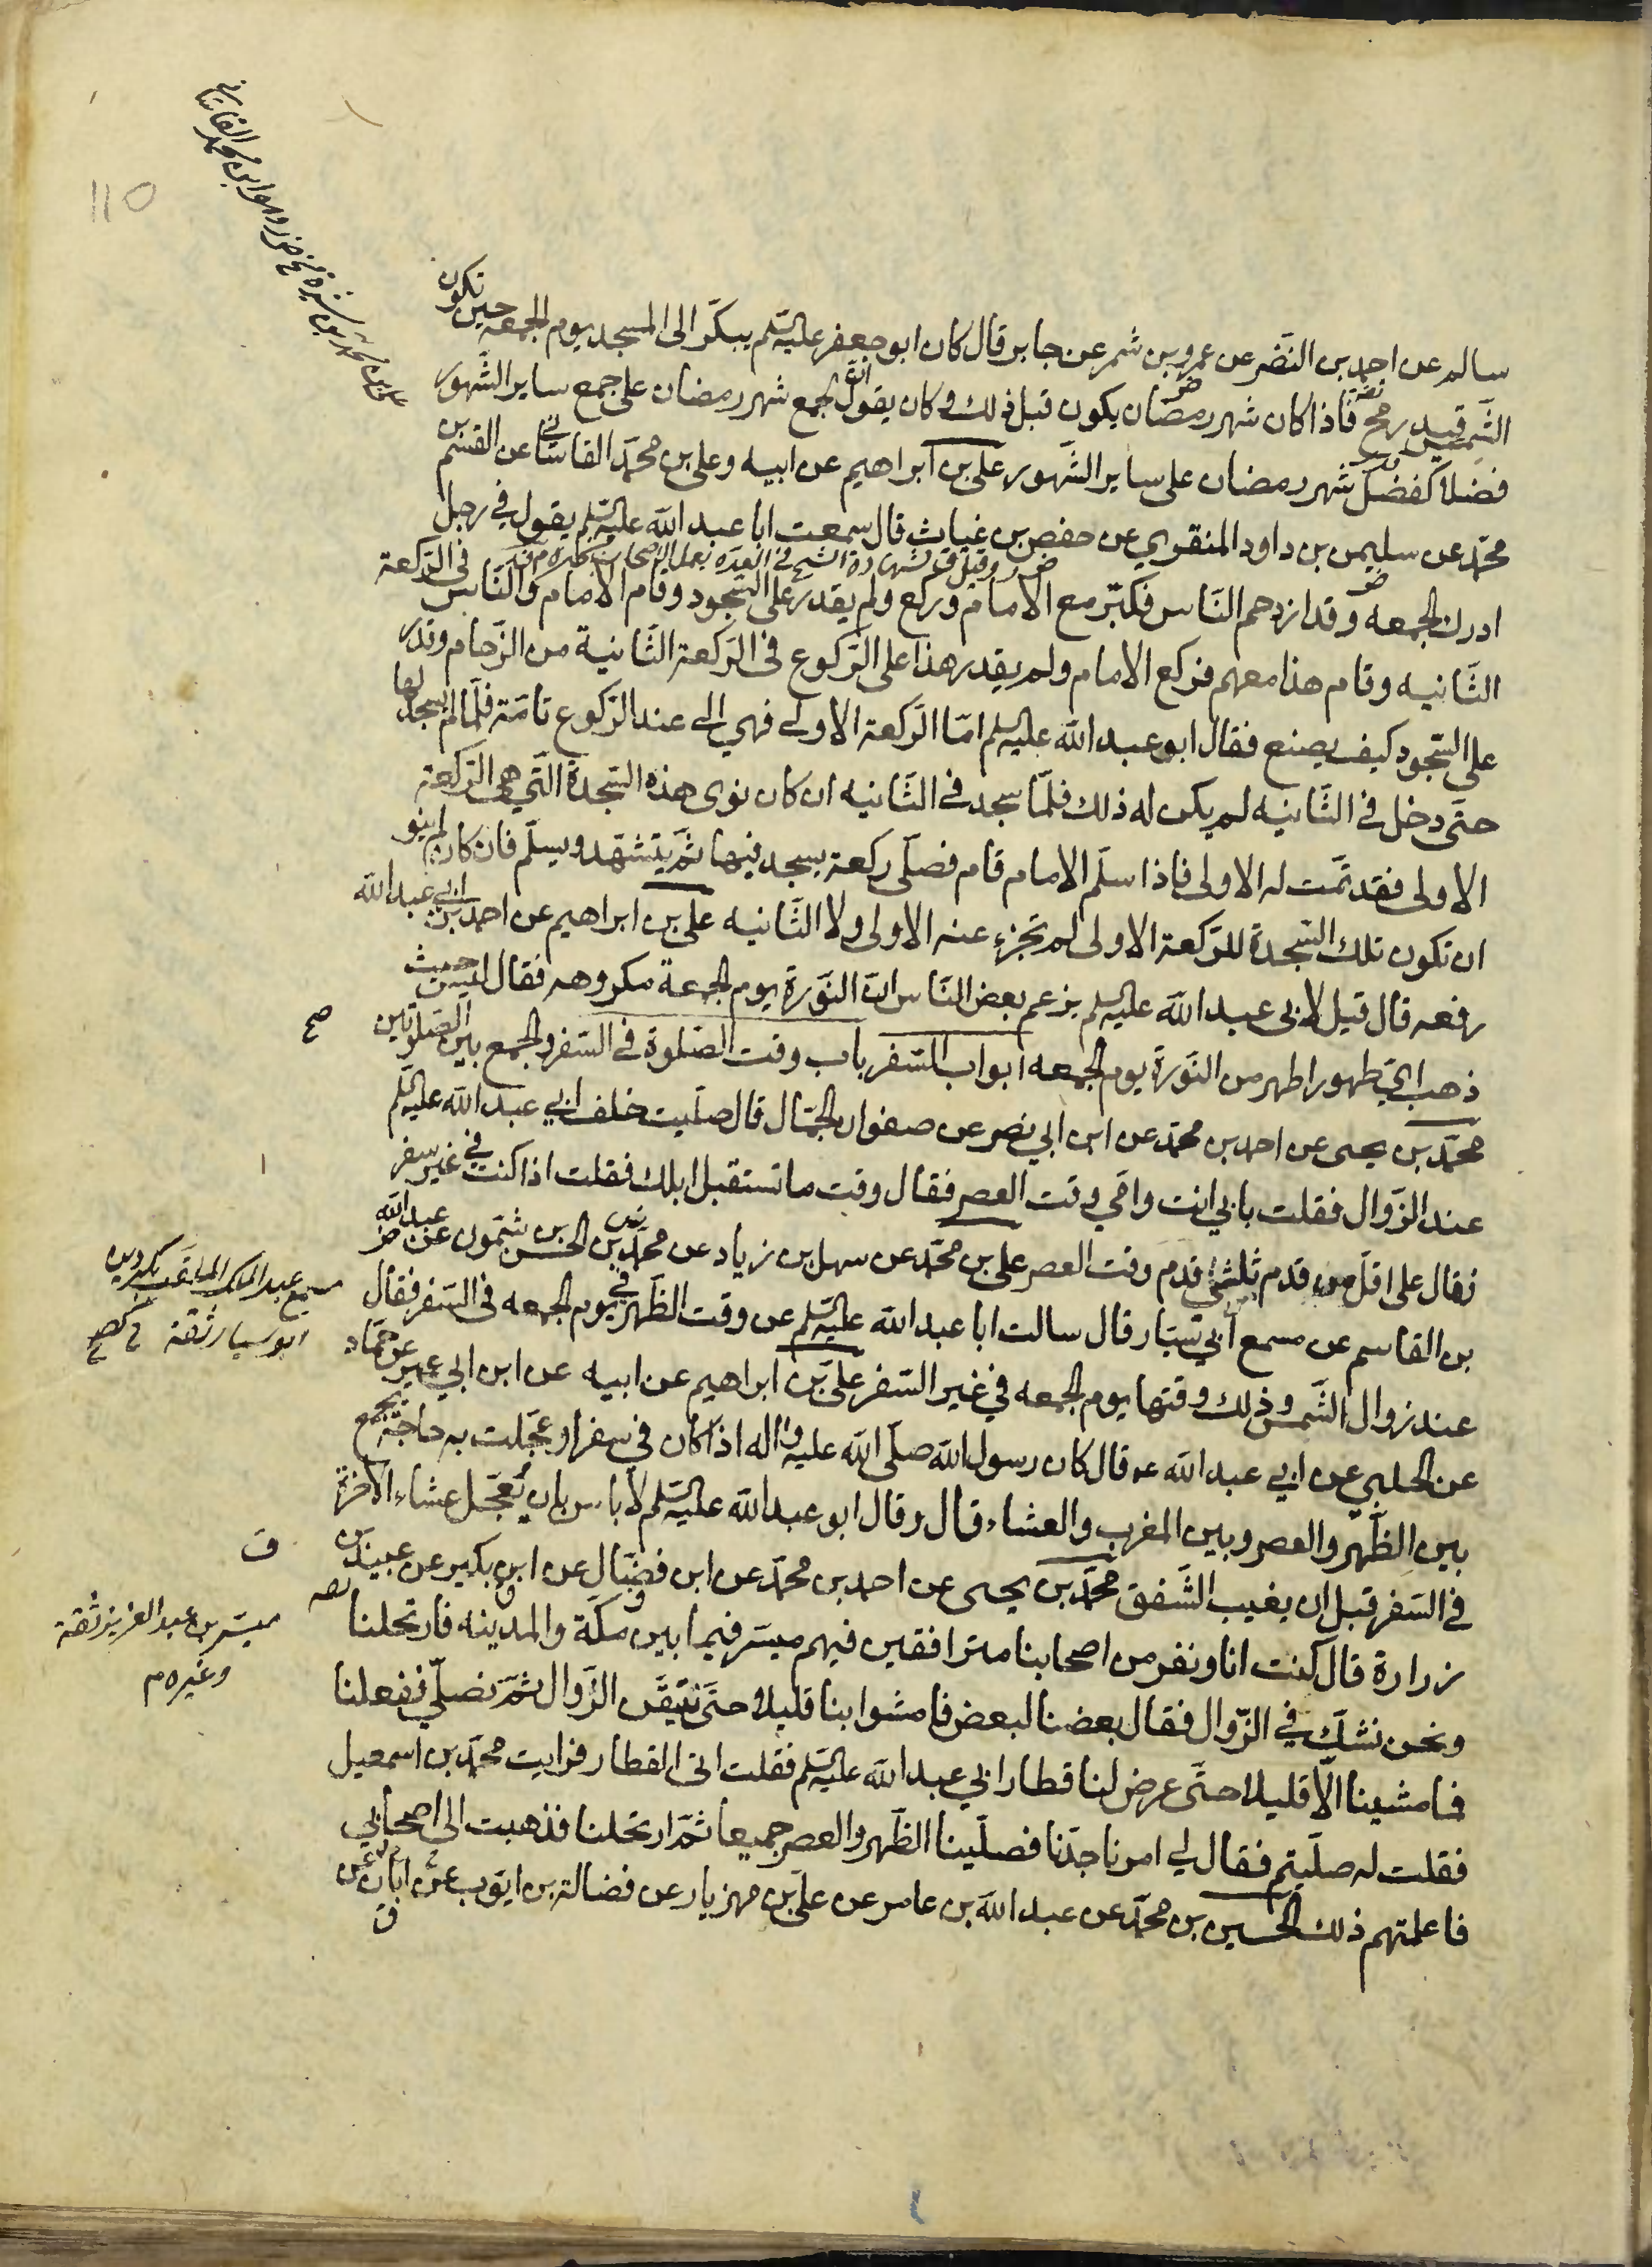 سالم عن احمد بن النضر عن عمرو بن شمر عن جابر قال كان ابو جعفر عليه السلم يبكّر الى المسجد يوم الجمعه حين تكون
الشمس قيد رمح فاذا كان شهر رمضان يكون قبل ذلك وكان يقول ان لجمع شهر رمضان على جمع ساير الشهور
فضلا كفضل شهر رمضان على ساير الشهور علي بن ابراهيم عن ابيه وعلي بن محمد القاساني عن القسم بن
محمد عن سليمن بن داود المنقري عن حفص بن غياث قال سمعت ابا عبد الله عليه السلم يقول في رجل
ادرك الجمعه وقد ازدحم الناس فكبّر مع الامام وركع ولم يقدر على السجود وقام الامام والناس في الركعة
الثانيه وقام هذا معهم فركع الامام ولم يقدر هذا على الركوع في الركعة الثانية من الزحام وقدر
على السجود كيف يصنع فقال ابو عبد الله عليه السلم امّا الركعة الاولى فهي الى عند الركوع تامّة فلمّا لم يسجد لها
حتى دخل في الثانيه لم يكن له ذلك فلمّا سجد في الثانيه ان كان نوى هذه السجدة التي هي الركعة
الاولى فقد تمّت له الاولى فاذا سلّم الامام قام فصلّى ركعة يسجد فيها ثم يتشهد ويسلّم فان كان لم ينو
ان تكون تلك السجدة للركعة الاولى لم تجزء عنه الاولى ولا الثانيه علي بن ابراهيم عن احمد بن ابي عبد الله
رفعه قال قيل لابي عبد الله عليه السلم يزعم بعض الناس انّ النورة يوم الجمعة مكروهه فقال ليس حيث
ذهب ايّ طهور اطهر من النورة يوم الجمعه ابواب السفر باب وقت الصلوة في السفر والجمع بين الصلوتين
صح
محمد بن يحيى عن احمد بن محمد عن ابن ابي نصر عن صفوان الجمّال قال صليت خلف ابي عبد الله عليه السلم
عند الزوال فقلت بابي انت وامّي وقت العصر فقال وقت ما تستقبل ابلك فقلت اذا كنت في غير سفر
فقال على اقل من قدم ثلثي قدم وقت العصر علي بن محمد عن سهل بن زياد عن محمد بن الحسن بن شمّون عن عبد الله
بن القاسم عن مسمع ابي سيّار قال سالت ابا عبد الله عليه السلم عن وقت الظهر في يوم الجمعه في السفر فقال
مسمع عبد الملك الملقب بكردين
ابو سيار ثقة
عند زوال الشمس وذلك وقتها يوم الجمعه في غير السفر علي بن ابراهيم عن ابيه عن ابن ابي عمير عن حمّاد
عن الحلبي عن ابي عبد الله عه قال كان رسول الله صلى الله عليه واله اذا كان في سفر او عجّلت به حاجة يجمع
بين الظهر والعصر وبين المغرب والعشاء قال وقال ابو عبد الله عليه السلم لا باس بان تعجّل عشاء الاخرة
في السفر قبل ان يغيب الشفق محمد بن يحيى عن احمد بن محمد عن ابن فضّال عن ابن بكير عن عبيد بن
زرارة قال كنت انا ونفر من اصحابنا مترافقين فيهم ميسر فيما بين مكة والمدينه فارتحلنا
ميسّر بن عبد العزيز ثقة
وغيره م
ونحن نشكّ في الزوال فقال بعضنا لبعض فامشوا بنا قليلا حتى نتيقّن الزوال ثمّ نصلّي ففعلنا
فما مشينا الّا قليلا حتى عرض لنا قطار ابي عبد الله عليه السلم فقلت اتى القطار فرايت محمد بن اسمعيل
فقلت له صلّيتم فقال لي امرنا جدّنا فصلّينا الظهر والعصر جميعا ثمّ ارتحلنا فذهبت الى اصحابي
فاعلمتهم ذلك الحسين بن محمد عن عبد الله بن عامر عن علي بن مهزيار عن فضالة بن ايوب عن ابان عن